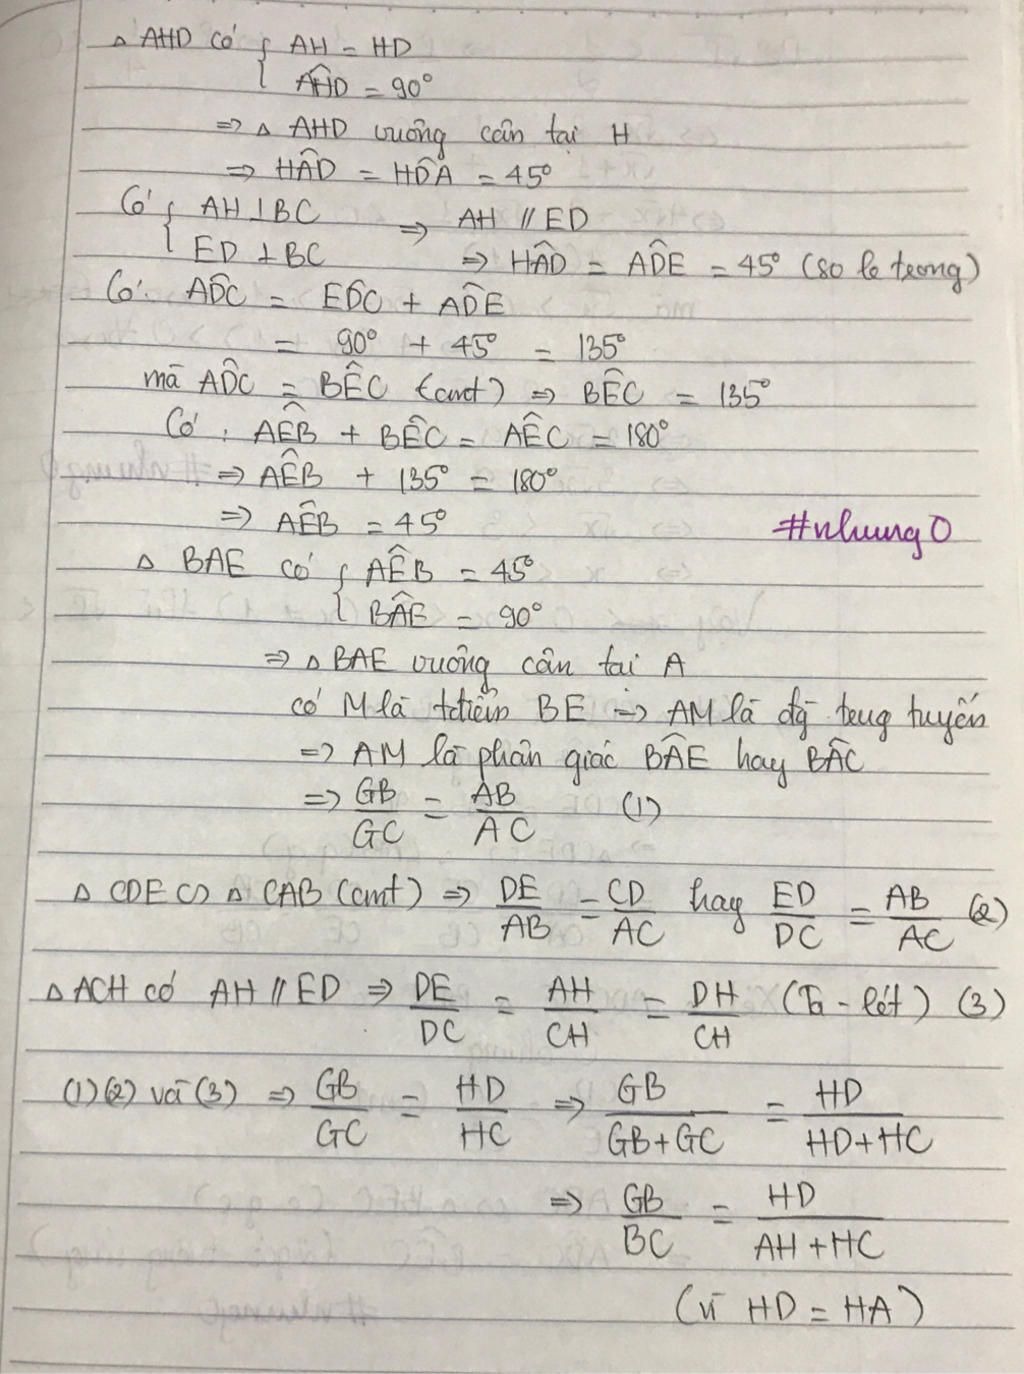 Δ AHD có { AH = HD
{ AĤD = 90°
=> Δ AHD vuông cân tại H
=> HÂD = HD̂A = 45°
Có { AH ⊥ BC => AH // ED
{ ED ⊥ BC => HÂD = AD̂E = 45° (so le trong)
Có: AD̂C = ED̂C + AD̂E
= 90° + 45° = 135°
mà AD̂C = BÊC (cmt) => BÊC = 135°
Có: AÊB + BÊC = AÊC = 180°
=> AÊB + 135° = 180°
=> AÊB = 45°
#nhung0
Δ BAE có { AÊB = 45°
{ BÂE = 90°
=> Δ BAE vuông cân tại A
có M là tđiểm BE => AM là đg trung tuyến
=> AM là phân giác BÂE hay BÂC
=> GB/GC = AB/AC (1)
Δ CDE ∽ Δ CAB (cmt) => DE/AB = CD/AC hay ED/DC = AB/AC (2)
Δ ACH có AH // ED => DE/DC = AH/CH = DH/CH (Ta-lét) (3)
(1)(2) và (3) => GB/GC = HD/HC => GB/GB+GC = HD/HD+HC
=> GB/BC = HD/AH+HC
(vì HD = HA)